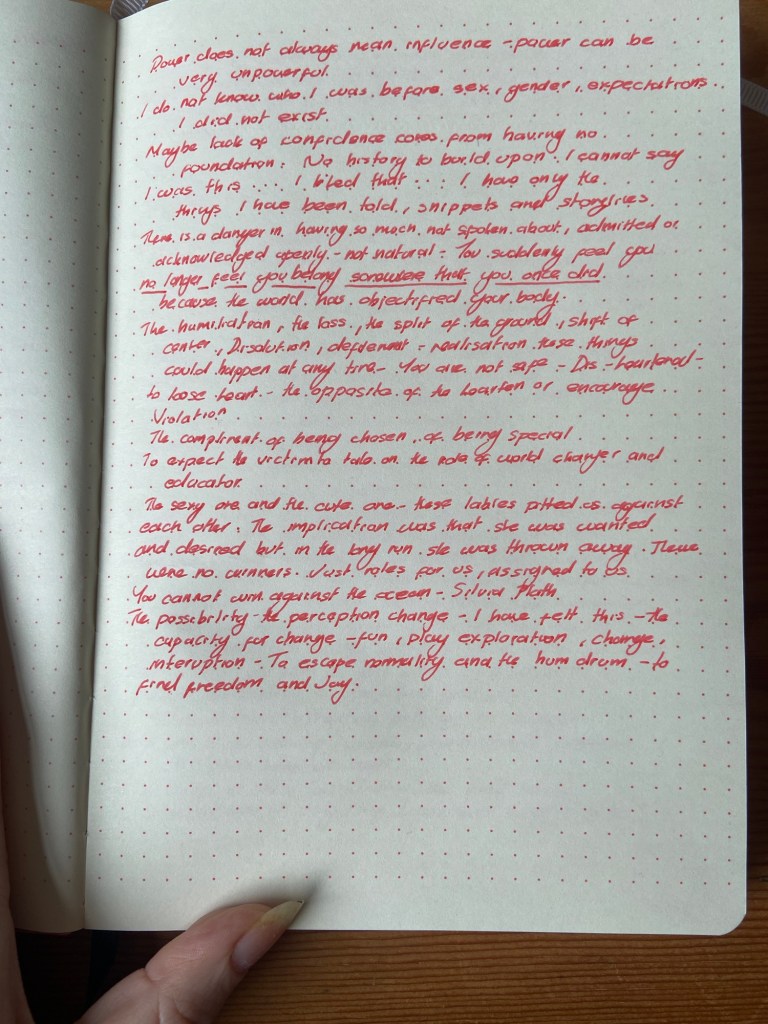 Power does not always mean influence - power can be
very unpowerful.
I do not know who I was before sex, gender, expectations.
I did not exist.
Maybe lack of confidence comes from having no
foundation: No history to build upon. I cannot say
I was this .... I liked that ... I have only the
things I have been told, snippets and storylines.
There is a danger in having so much not spoken about, admitted or
acknowledged openly - not natural - You suddenly feel you
no longer feel you belong somewhere that you once did
because the world has objectified your body.
The humiliation, the loss, the split of the ground, shift of
center, Disolution, defilement - realisation these things
could happen at any time - You are not safe - Dis-heartened -
to loose heart - the opposite of the hearten or encourage
Violation
The compliment of being chosen, of being special
To expect the victim to take on the role of world changer and
educator
The sexy one and the cute one - these lables pitted us against
each other. The implication was that she was wanted
and desired but in the long run she was thrown away. There
were no winners. Just roles for us, assigned to us
You cannot win against the ocean - Silvia Plath.
The possibility - the perception change - I have felt this - the
capacity for change - fun, play exploration, change,
interuption - To escape normality and the hum drum - to
find freedom and Joy.